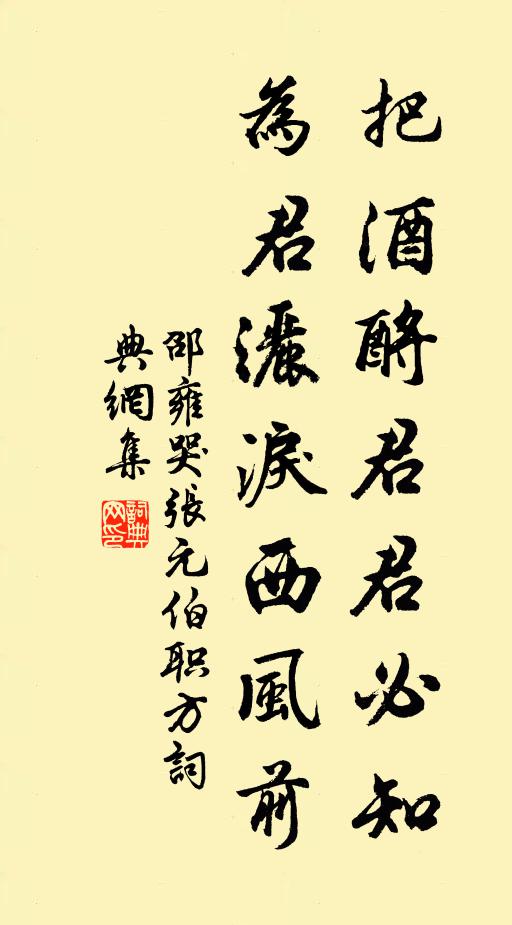 把酒酹君君必知
為君灑淚西風前
邵雍哭張元伯职方詞
典網集
詞典网印